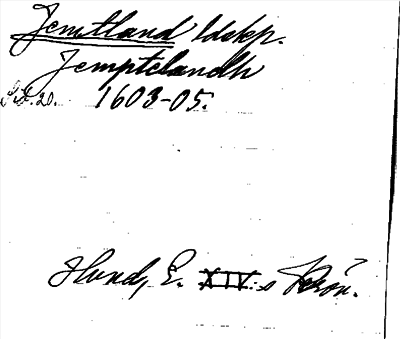 Jemtland ldskp.
Jemptelandh
s. 20. 1603-05.
Hund, E. XIV:s krön.